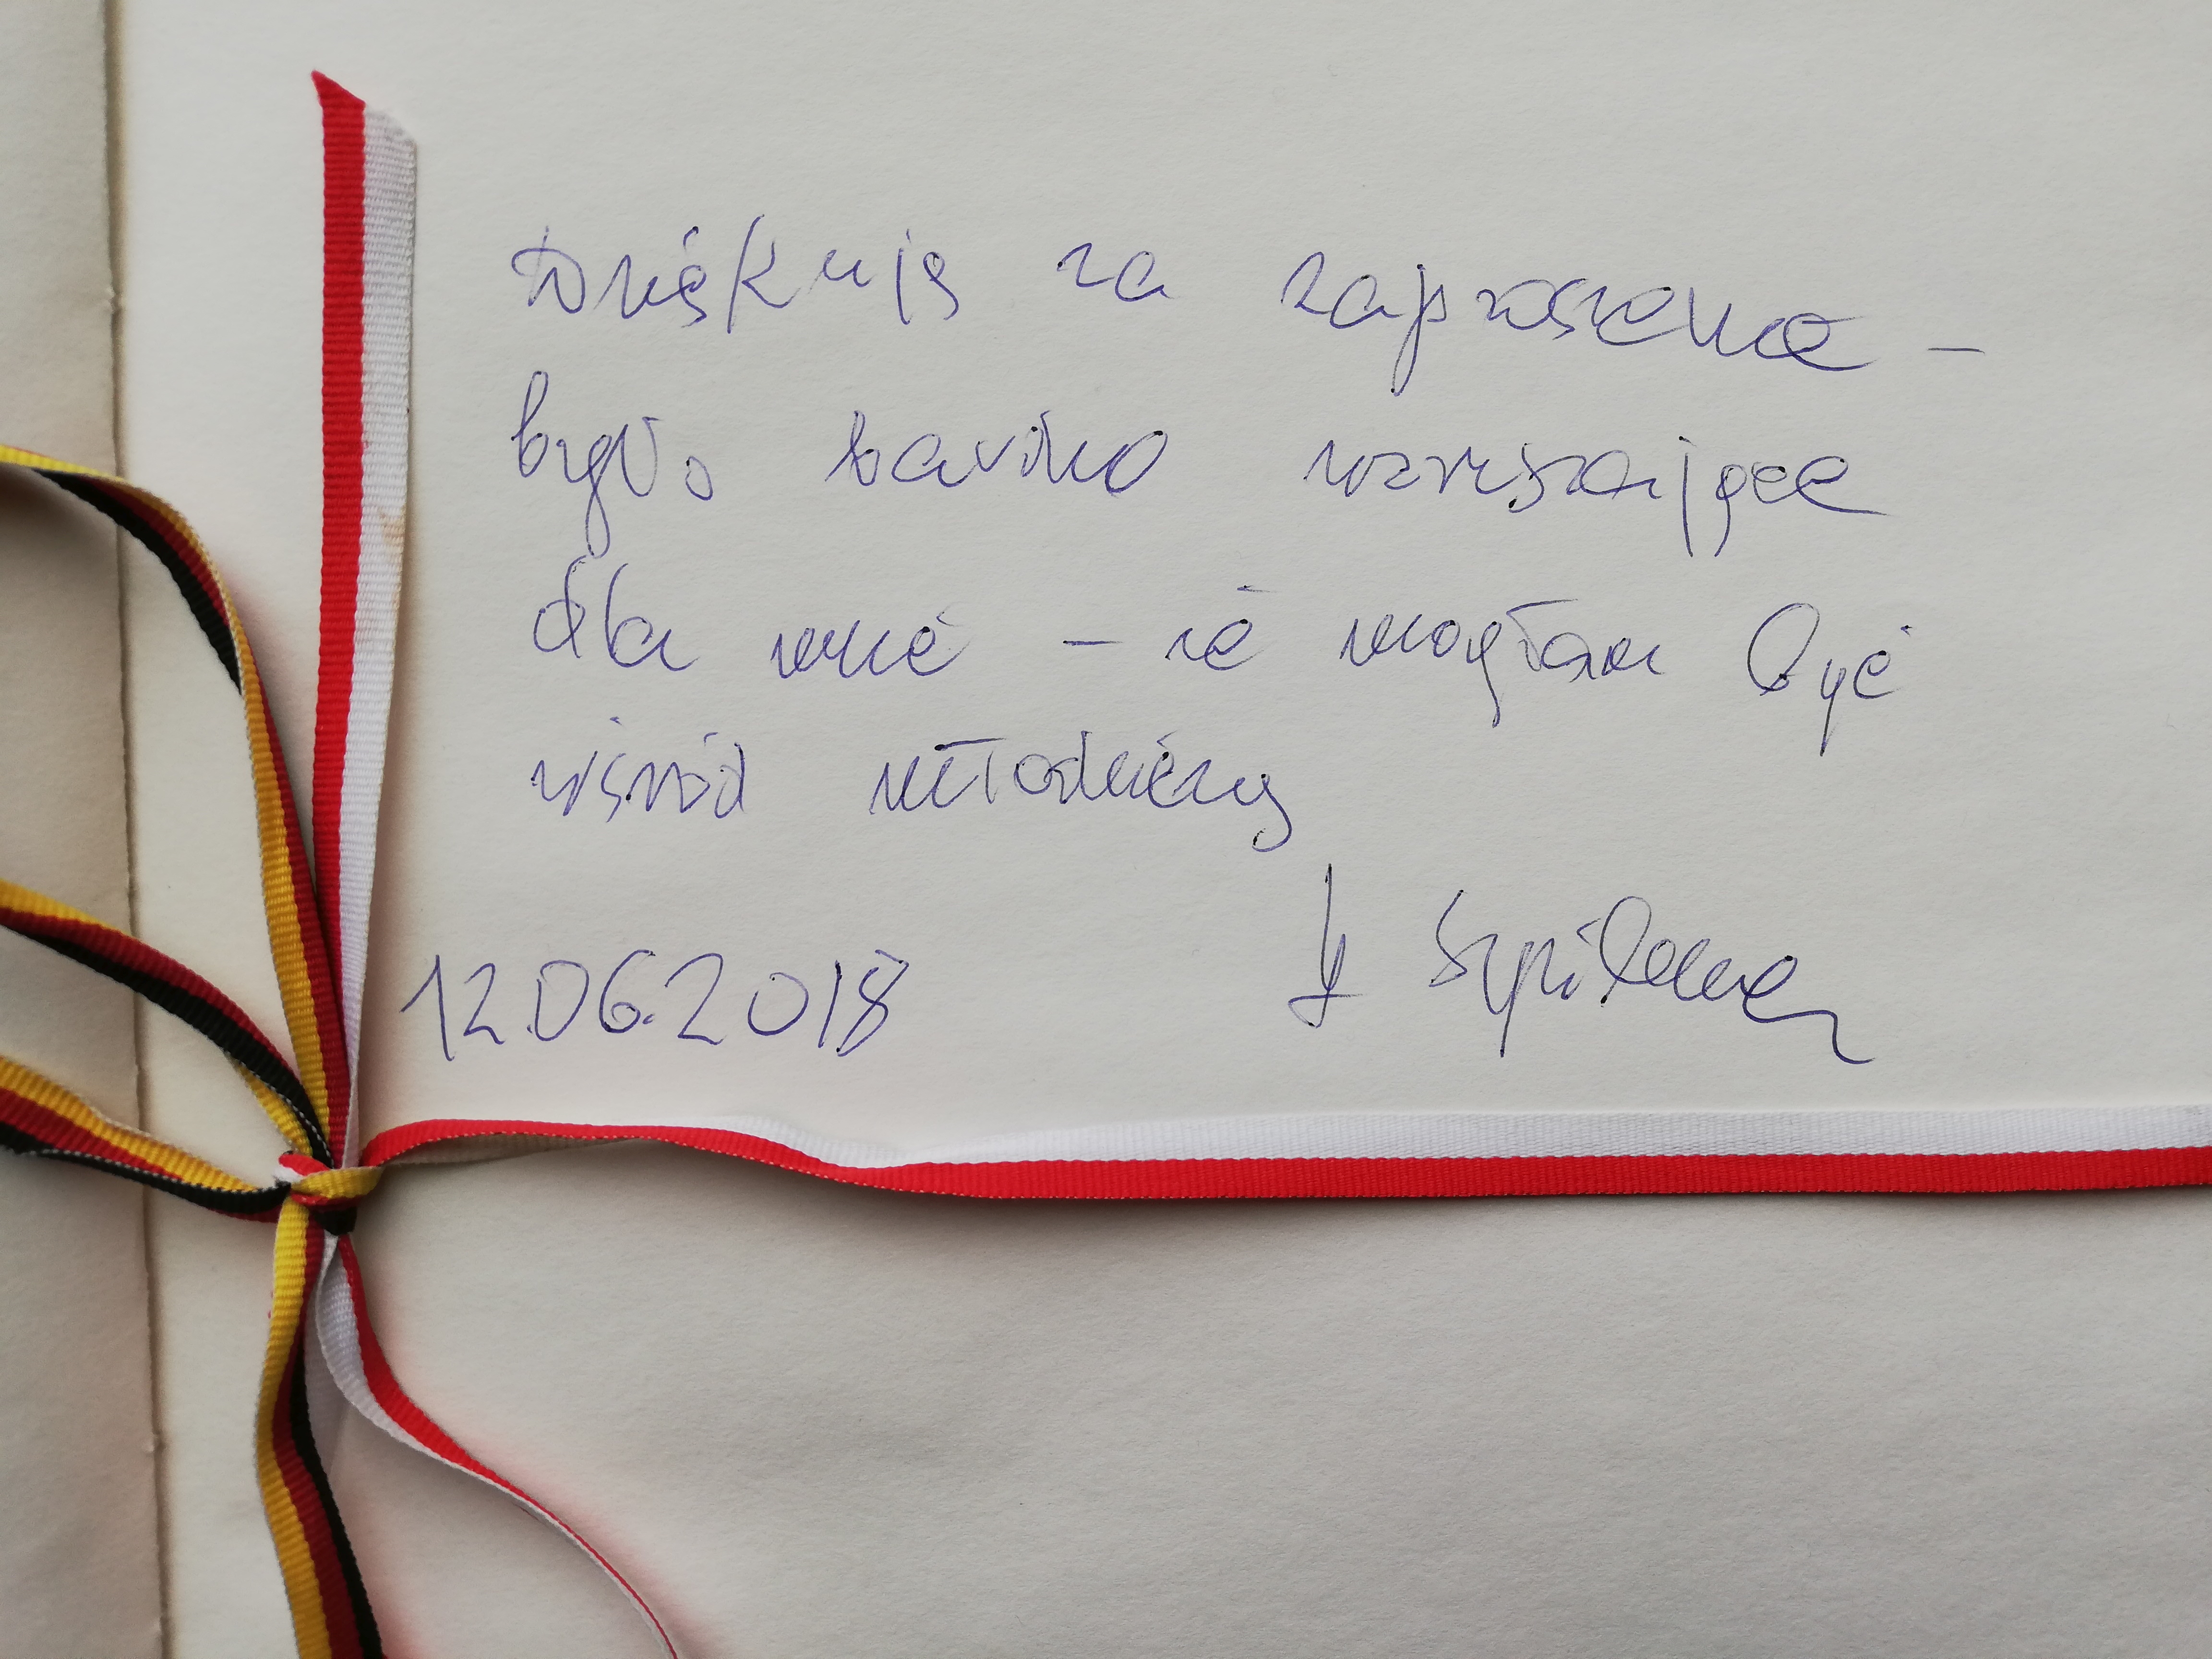 Dziękuję za zaproszenie –
było bardzo wzruszające
dla mnie – że mogłam być
wśród młodzieży
12.06.2018 H Szpilman